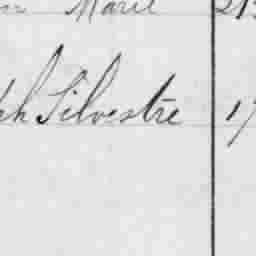 Marie 21
ph Silvestre 17